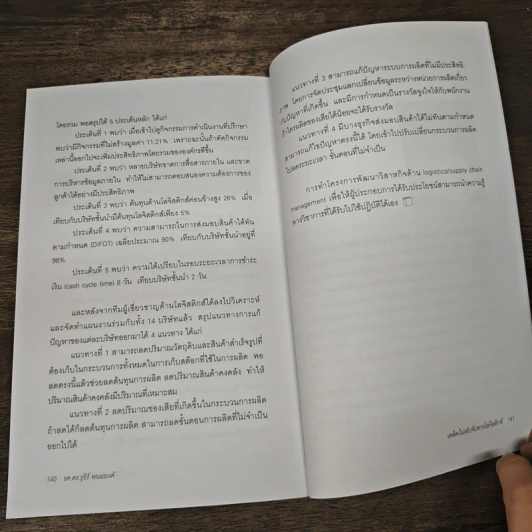 โดยรวม พอสรุปได้ 5 ประเด็นหลัก ได้แก่
ประเด็นที่ 1 พบว่า เมื่อเข้าไปดูกิจกรรมการดำเนินงานที่ปรึกษา
พบว่ามีกิจกรรมที่ไม่สร้างมูลค่า 11.21% เพราะฉะนั้นถ้าตัดกิจกรรม
เหล่านี้ออกไปจะเพิ่มประสิทธิภาพโดยรวมขององค์กรดีขึ้น
ประเด็นที่ 2 พบว่า หลายบริษัทขาดการสื่อสารภายใน และขาด
การบริหารข้อมูลภายใน ทำให้ไม่สามารถตอบสนองความต้องการของ
ลูกค้าได้อย่างมีประสิทธิภาพ
ประเด็นที่ 3 พบว่า ต้นทุนด้านโลจิสติกส์ค่อนข้างสูง 26% เมื่อ
เทียบกับบริษัทชั้นนำมีต้นทุนโลจิสติกส์เพียง 5%
ประเด็นที่ 4 พบว่า ความสามารถในการส่งมอบสินค้าได้ทัน
ตามกำหนด (DIFOT) เฉลี่ยประมาณ 90% เทียบกับบริษัทชั้นนำอยู่ที่
98%
ประเด็นที่ 5 พบว่า ความได้เปรียบในรอบระยะเวลาการชำระ
เงิน (cash cycle time) 8 วัน เทียบบริษัทชั้นนำ 2 วัน
และหลังจากทีมผู้เชี่ยวชาญด้านโลจิสติกส์ได้ลงไปวิเคราะห์
และจัดทำแผนงานร่วมกับทั้ง 14 บริษัทแล้ว สรุปแนวทางการแก้
ปัญหาของแต่ละบริษัทออกมาได้ 4 แนวทาง ได้แก่
แนวทางที่ 1 สามารถลดปริมาณวัตถุดิบและสินค้าสำเร็จรูปที่
ต้องเก็บในกระบวนการทั้งหมดในการเก็บสต็อกที่ใช้ในการผลิต พอ
ลดตรงนี้แล้วช่วยลดต้นทุนการผลิต ลดปริมาณสินค้าคงคลัง ทำให้
ปริมาณสินค้าคงคลังมีปริมาณที่เหมาะสม
แนวทางที่ 2 ลดปริมาณของเสียที่เกิดขึ้นในกระบวนการผลิต
ถ้าลดได้ก็ลดต้นทุนการผลิต สามารถลดขั้นตอนการผลิตที่ไม่จำเป็น
ออกไปได้
140 รศ.ดร.รุธิร์ พนมยงค์
แนวทางที่ 3 สามารถแก้ปัญหาระบบการผลิตที่ไม่มีประสิทธิ
ภาพ โดยการจัดประชุมแลกเปลี่ยนข้อมูลระหว่างหน่วยการผลิตเกี่ยว
กับปัญหาที่เกิดขึ้น และมีการกำหนดเป็นรางวัลจูงใจให้กับพนักงาน
ถ้าใครผลิตของเสียได้น้อยจะได้รับรางวัล
แนวทางที่ 4 มีบางธุรกิจส่งมอบสินค้าได้ไม่ทันตามกำหนด
สามารถแก้ไขปัญหาตรงนี้ได้ โดยเข้าไปปรับเปลี่ยนกระบวนการผลิต
ไปลดระยะเวลา ขั้นตอนที่ไม่จำเป็น
การทำโครงการพัฒนาวิสาหกิจด้าน logistics/supply chain
management เพื่อให้ผู้ประกอบการได้รับประโยชน์สามารถนำความรู้
ทางวิชาการที่ได้รับไปใช้ปฏิบัติได้เอง
เคล็ด(ไม่)ลับจับทางโลจิสติกส์ 141